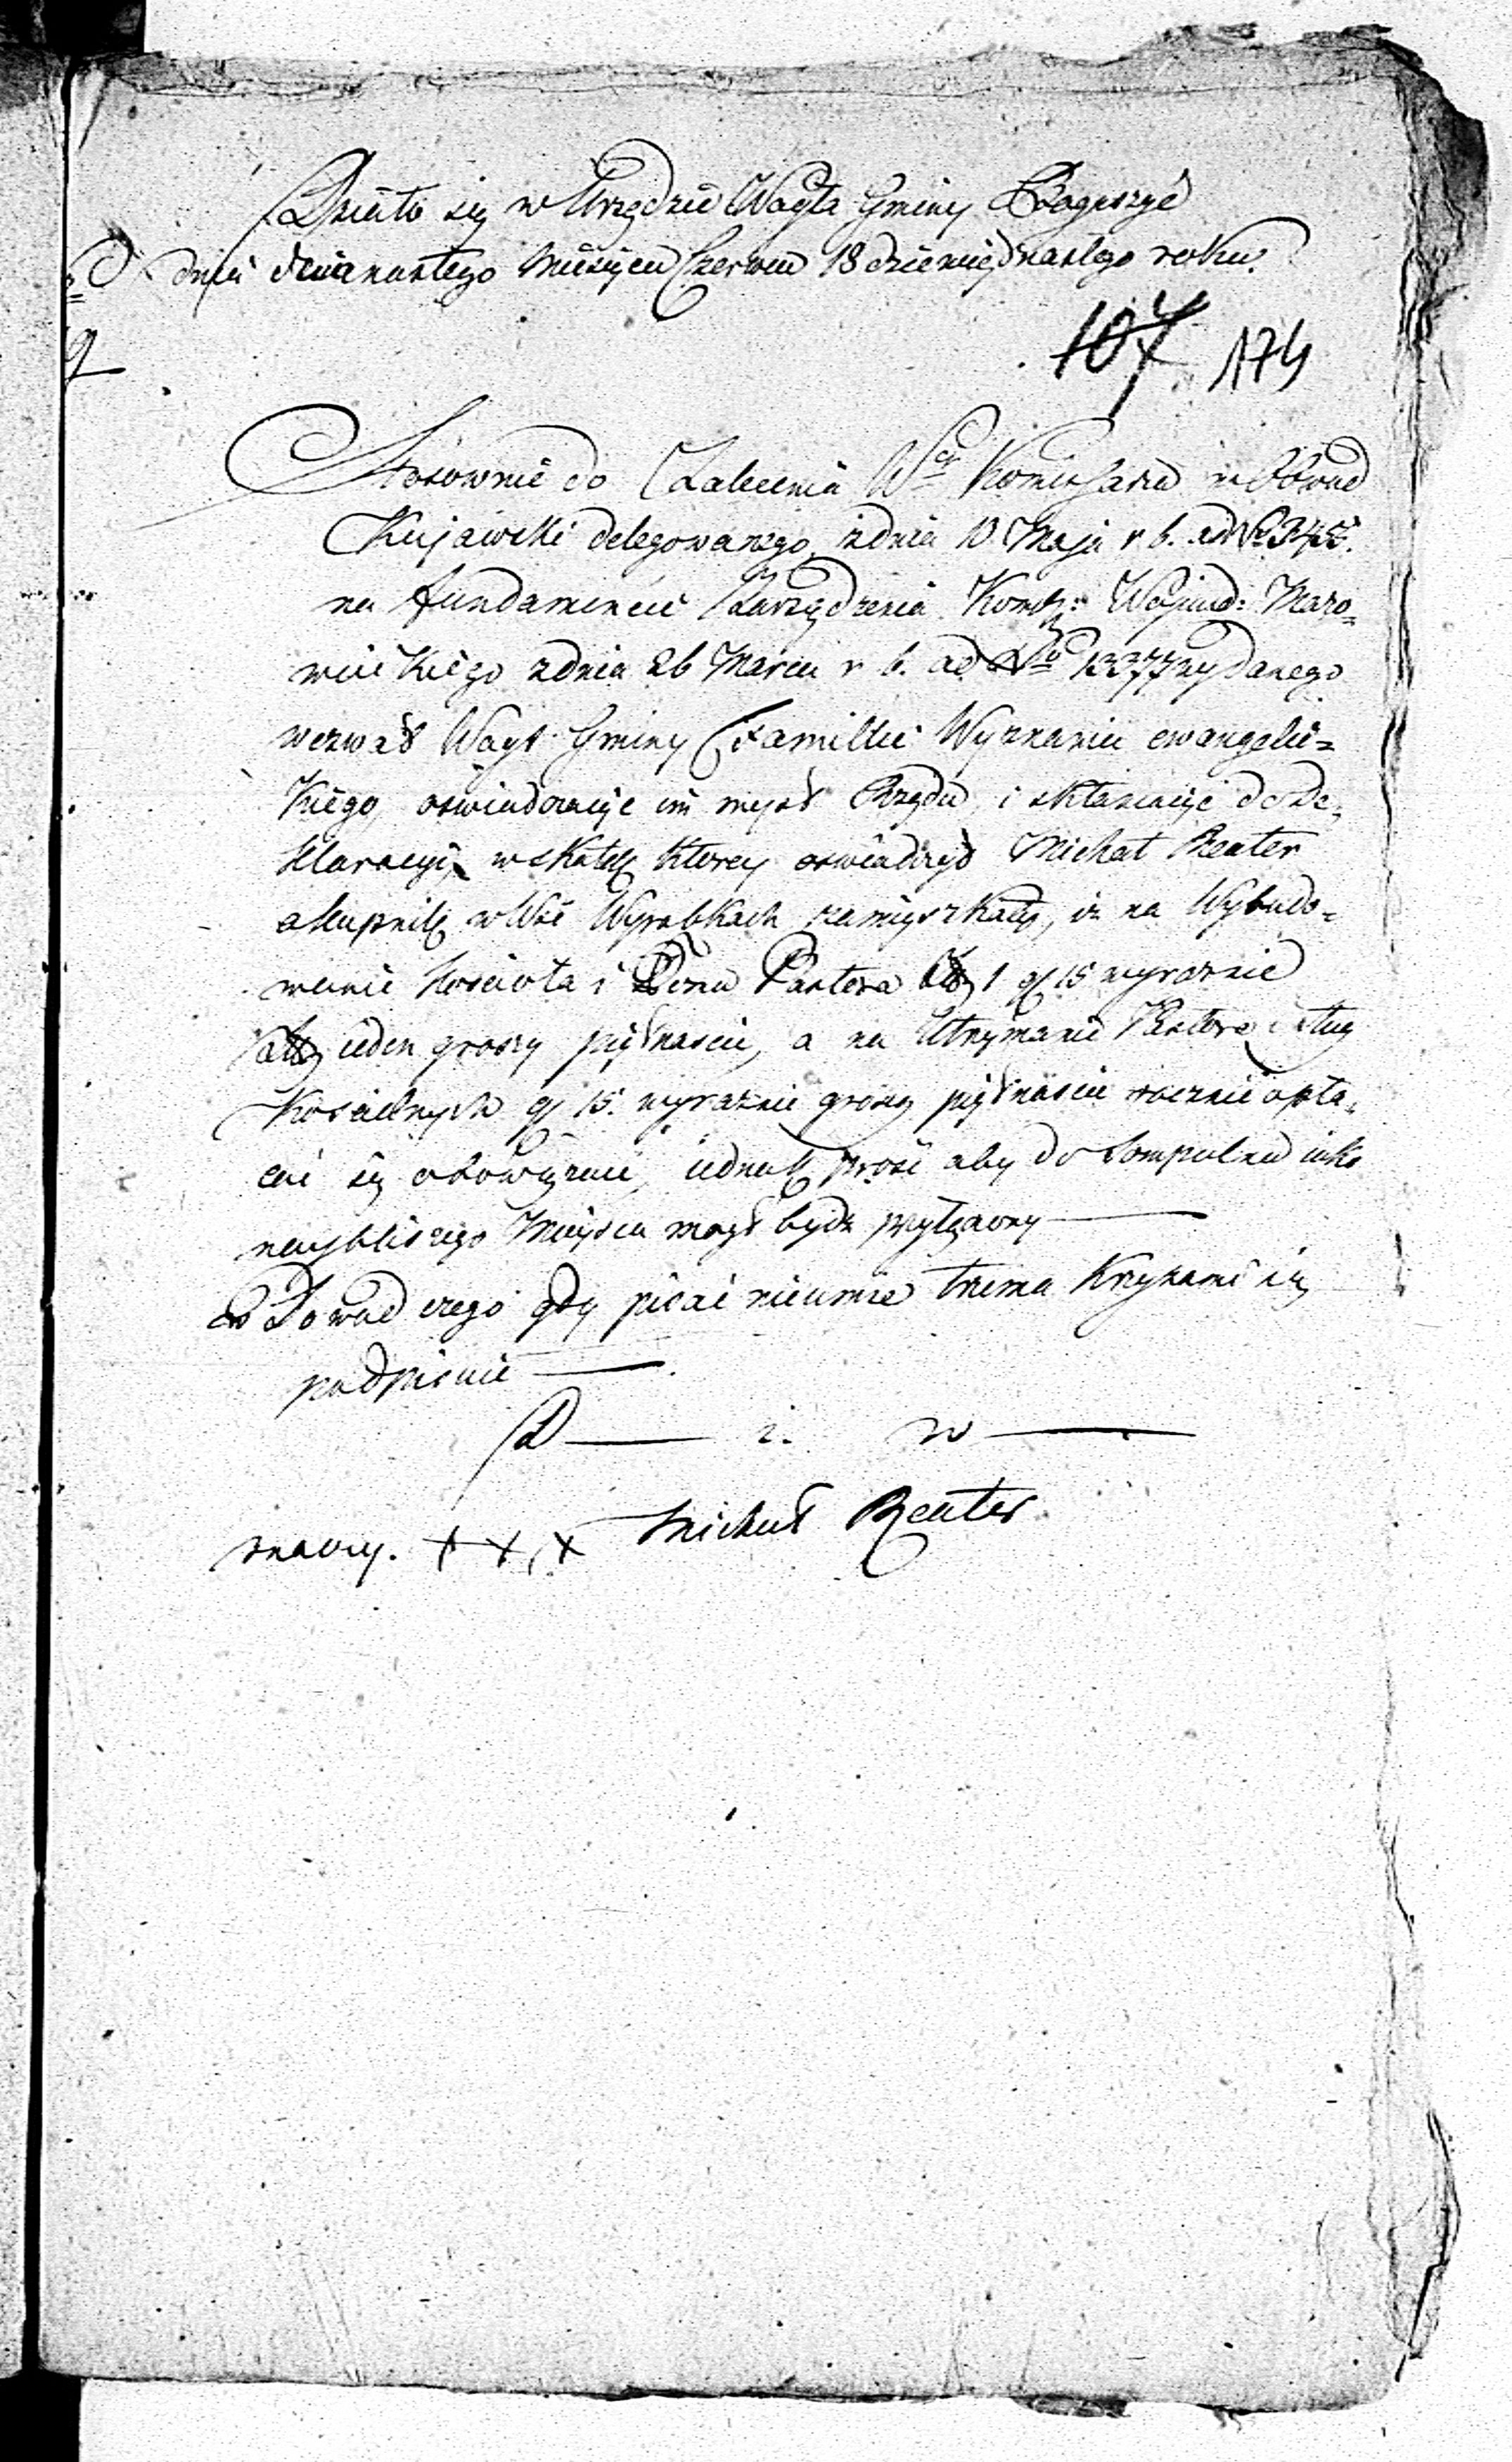 Działo się w Urzędzie Woyta Gminy Boguszyc
dnia dwunastego Miesiąca Czerwca 18 dziewiętnastego roku.
107 174
Stosownie do Zalecenia Wgo Komissarza w Obwod
Kujawski delegowanego, zdnia 10 Maja r b. ad No
na fundamencie Zarządzenia Komss: Wojewd: Mazo=
wieckiego zdnia 26 Marca r b. ad No 13377 wydanego
wezwał Woyt Gminy Familie Wyznania ewangelic=
kiego, oświadczaiąc im myśl Rządu, i skłaniaiąc do de=
klaracyi, w skutek którey oswiadczył Michał Reuter
okupnik w Wsi Wyrobkach zamieszkały, iż na Wybudo=
wanie kościoła i Domu Pastora 1 gr 15 wyraznie
ieden groszy piętnascie, a na Utrzymanie Pastora i sług
Koscielnych gr 15. wyraznie groszy piętnascie rocznie opła=
cać się obowiązuie, iednak prosi aby do Sompolna iako
naybliszego Mieysca mogł bydz przyłączony
w Dowod czego gdy pisać nieumie trzema Krzyżami się
podpisuie
D i. w
znaczy. + + + Michał Reuter